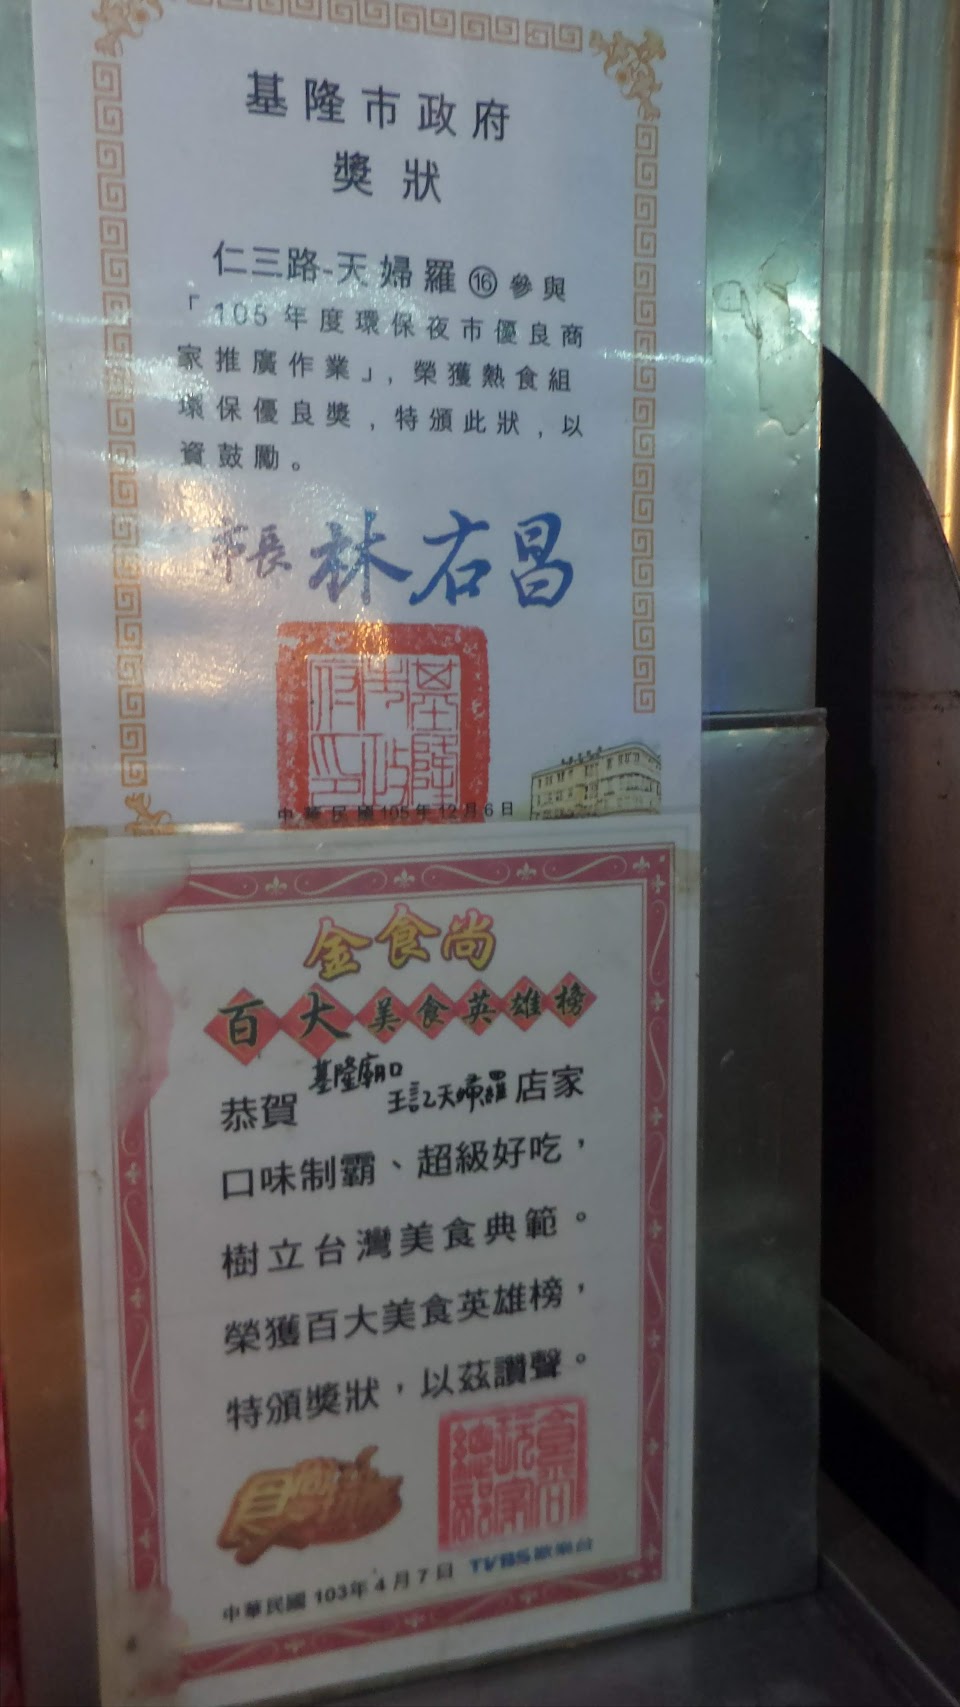 基隆市政府
獎狀
仁三路-天婦羅⑯參與
「105年度環保夜市優良商
家推廣作業」,榮獲熱食組
環保優良獎,特頒此狀,以
資鼓勵。
市長 林右昌
基隆市政府印
中華民國105年12月6日
金食尚
百大美食英雄榜
基隆廟口
恭賀 王記天婦羅店家
口味制霸、超級好吃,
樹立台灣美食典範。
榮獲百大美食英雄榜,
特頒獎狀,以茲讚聲。
中華民國 103年4月7日 TVBS歡樂台